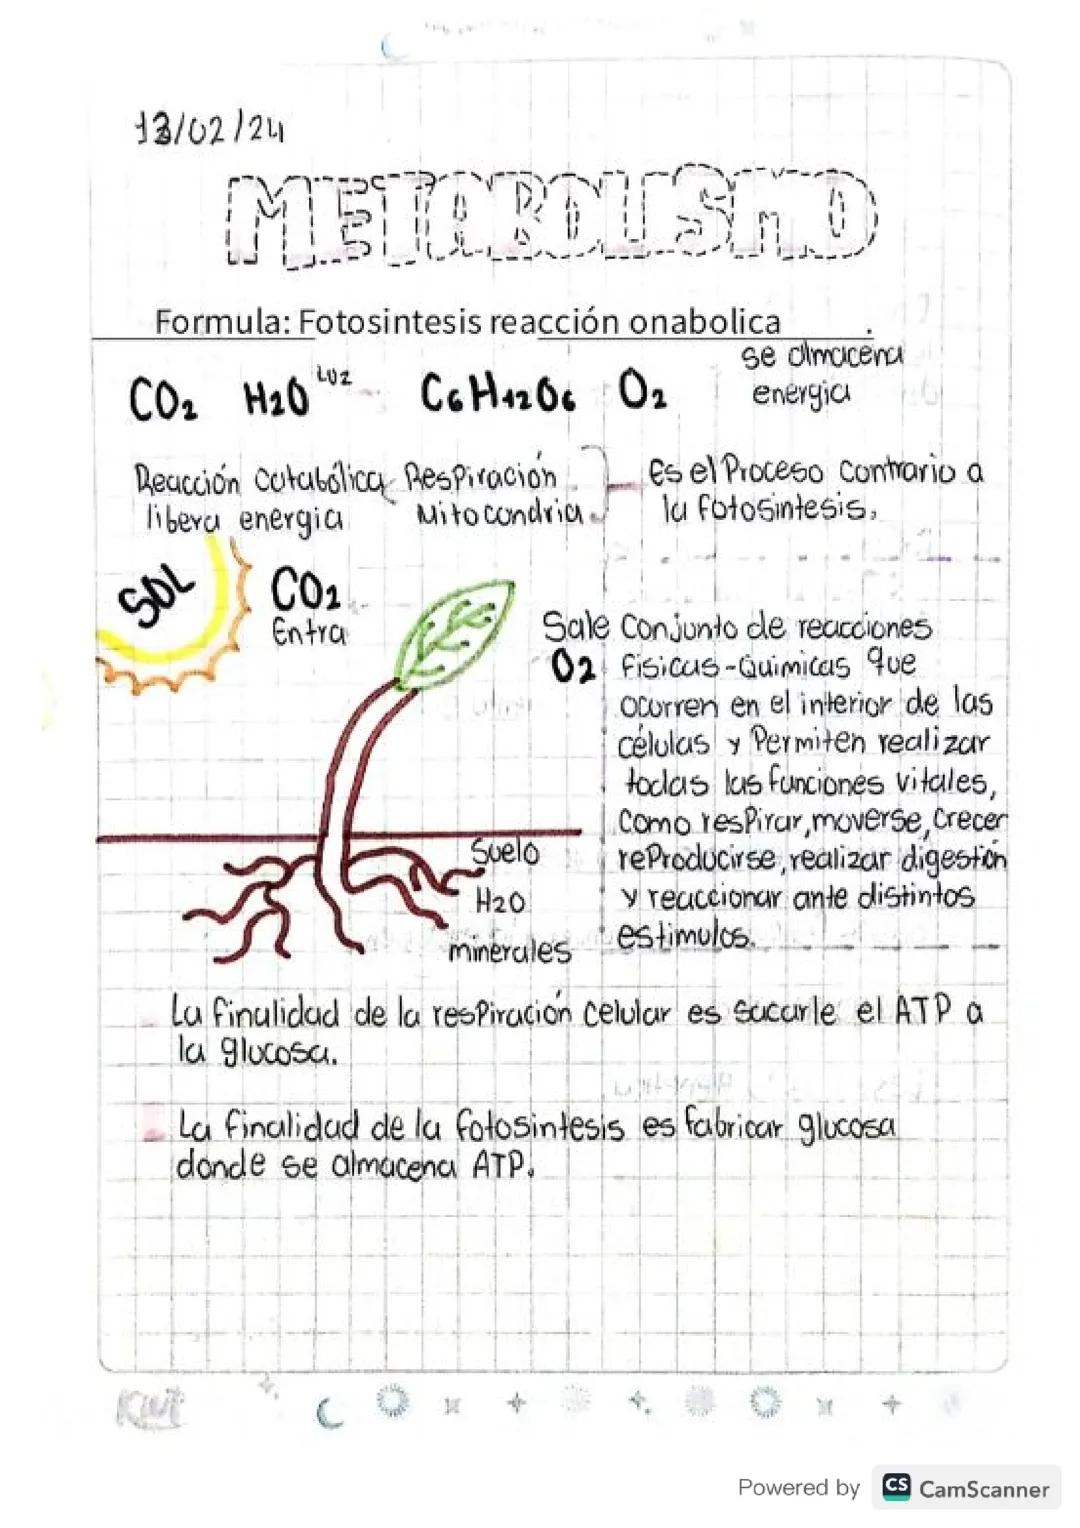 13/02/24
METABOLISMO
Formula: Fotosintesis reacción onabolica
se almacena
energia
CO2 H2O Luz C6H12O6 O2
Reacción Catabólica Respiración
libera energia Mitocondria
Es el Proceso contrario a
la fotosintesis.
SOL
CO2
Entra
Sale
O2
Conjunto de reacciones
fisicas-Quimicas que
ocurren en el interior de las
células y Permiten realizar
todas las funciones vitales,
Como resPirar, moverse, crecer
reProducirse, realizar digestión
y reaccionar ante distintos
estimulos.
Suelo
H2O
minerales
La finalidad de la resPiración Celular es sacarle el ATP a
la glucosa.
La finalidad de la fotosintesis es fabricar glucosa
donde se almacena ATP.
Powered by CS CamScanner